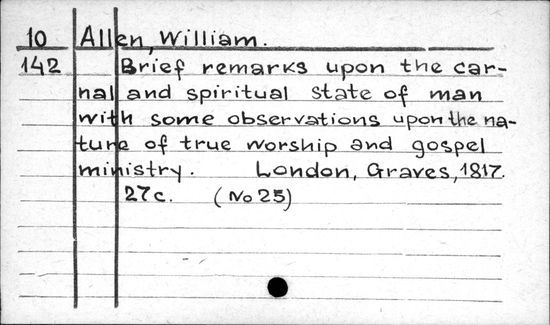 10 Allen, William.
142 Brief remarks upon the car-
nal and spiritual state of man
with some observations upon the na-
ture of true worship and gospel
ministry. London, Graves, 1817.
27c. (No 25)